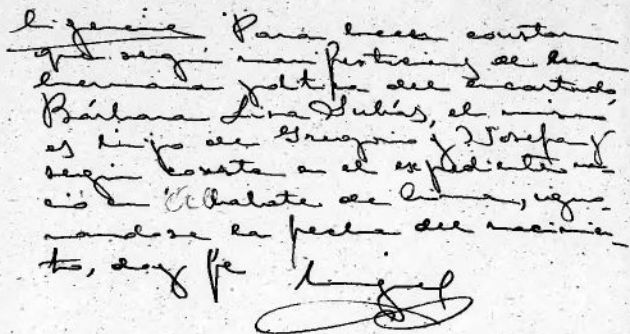 Diligencia Para hacer constar
que según manifestaciones de una
hermana política del encartado,
Bárbara Lira Gubías, el mismo
es hijo de Gregorio y Josefa y
según consta en el expediente na-
ció en Albalate de Cinca, igno-
randose la fecha del nacimien-
to, doy fe